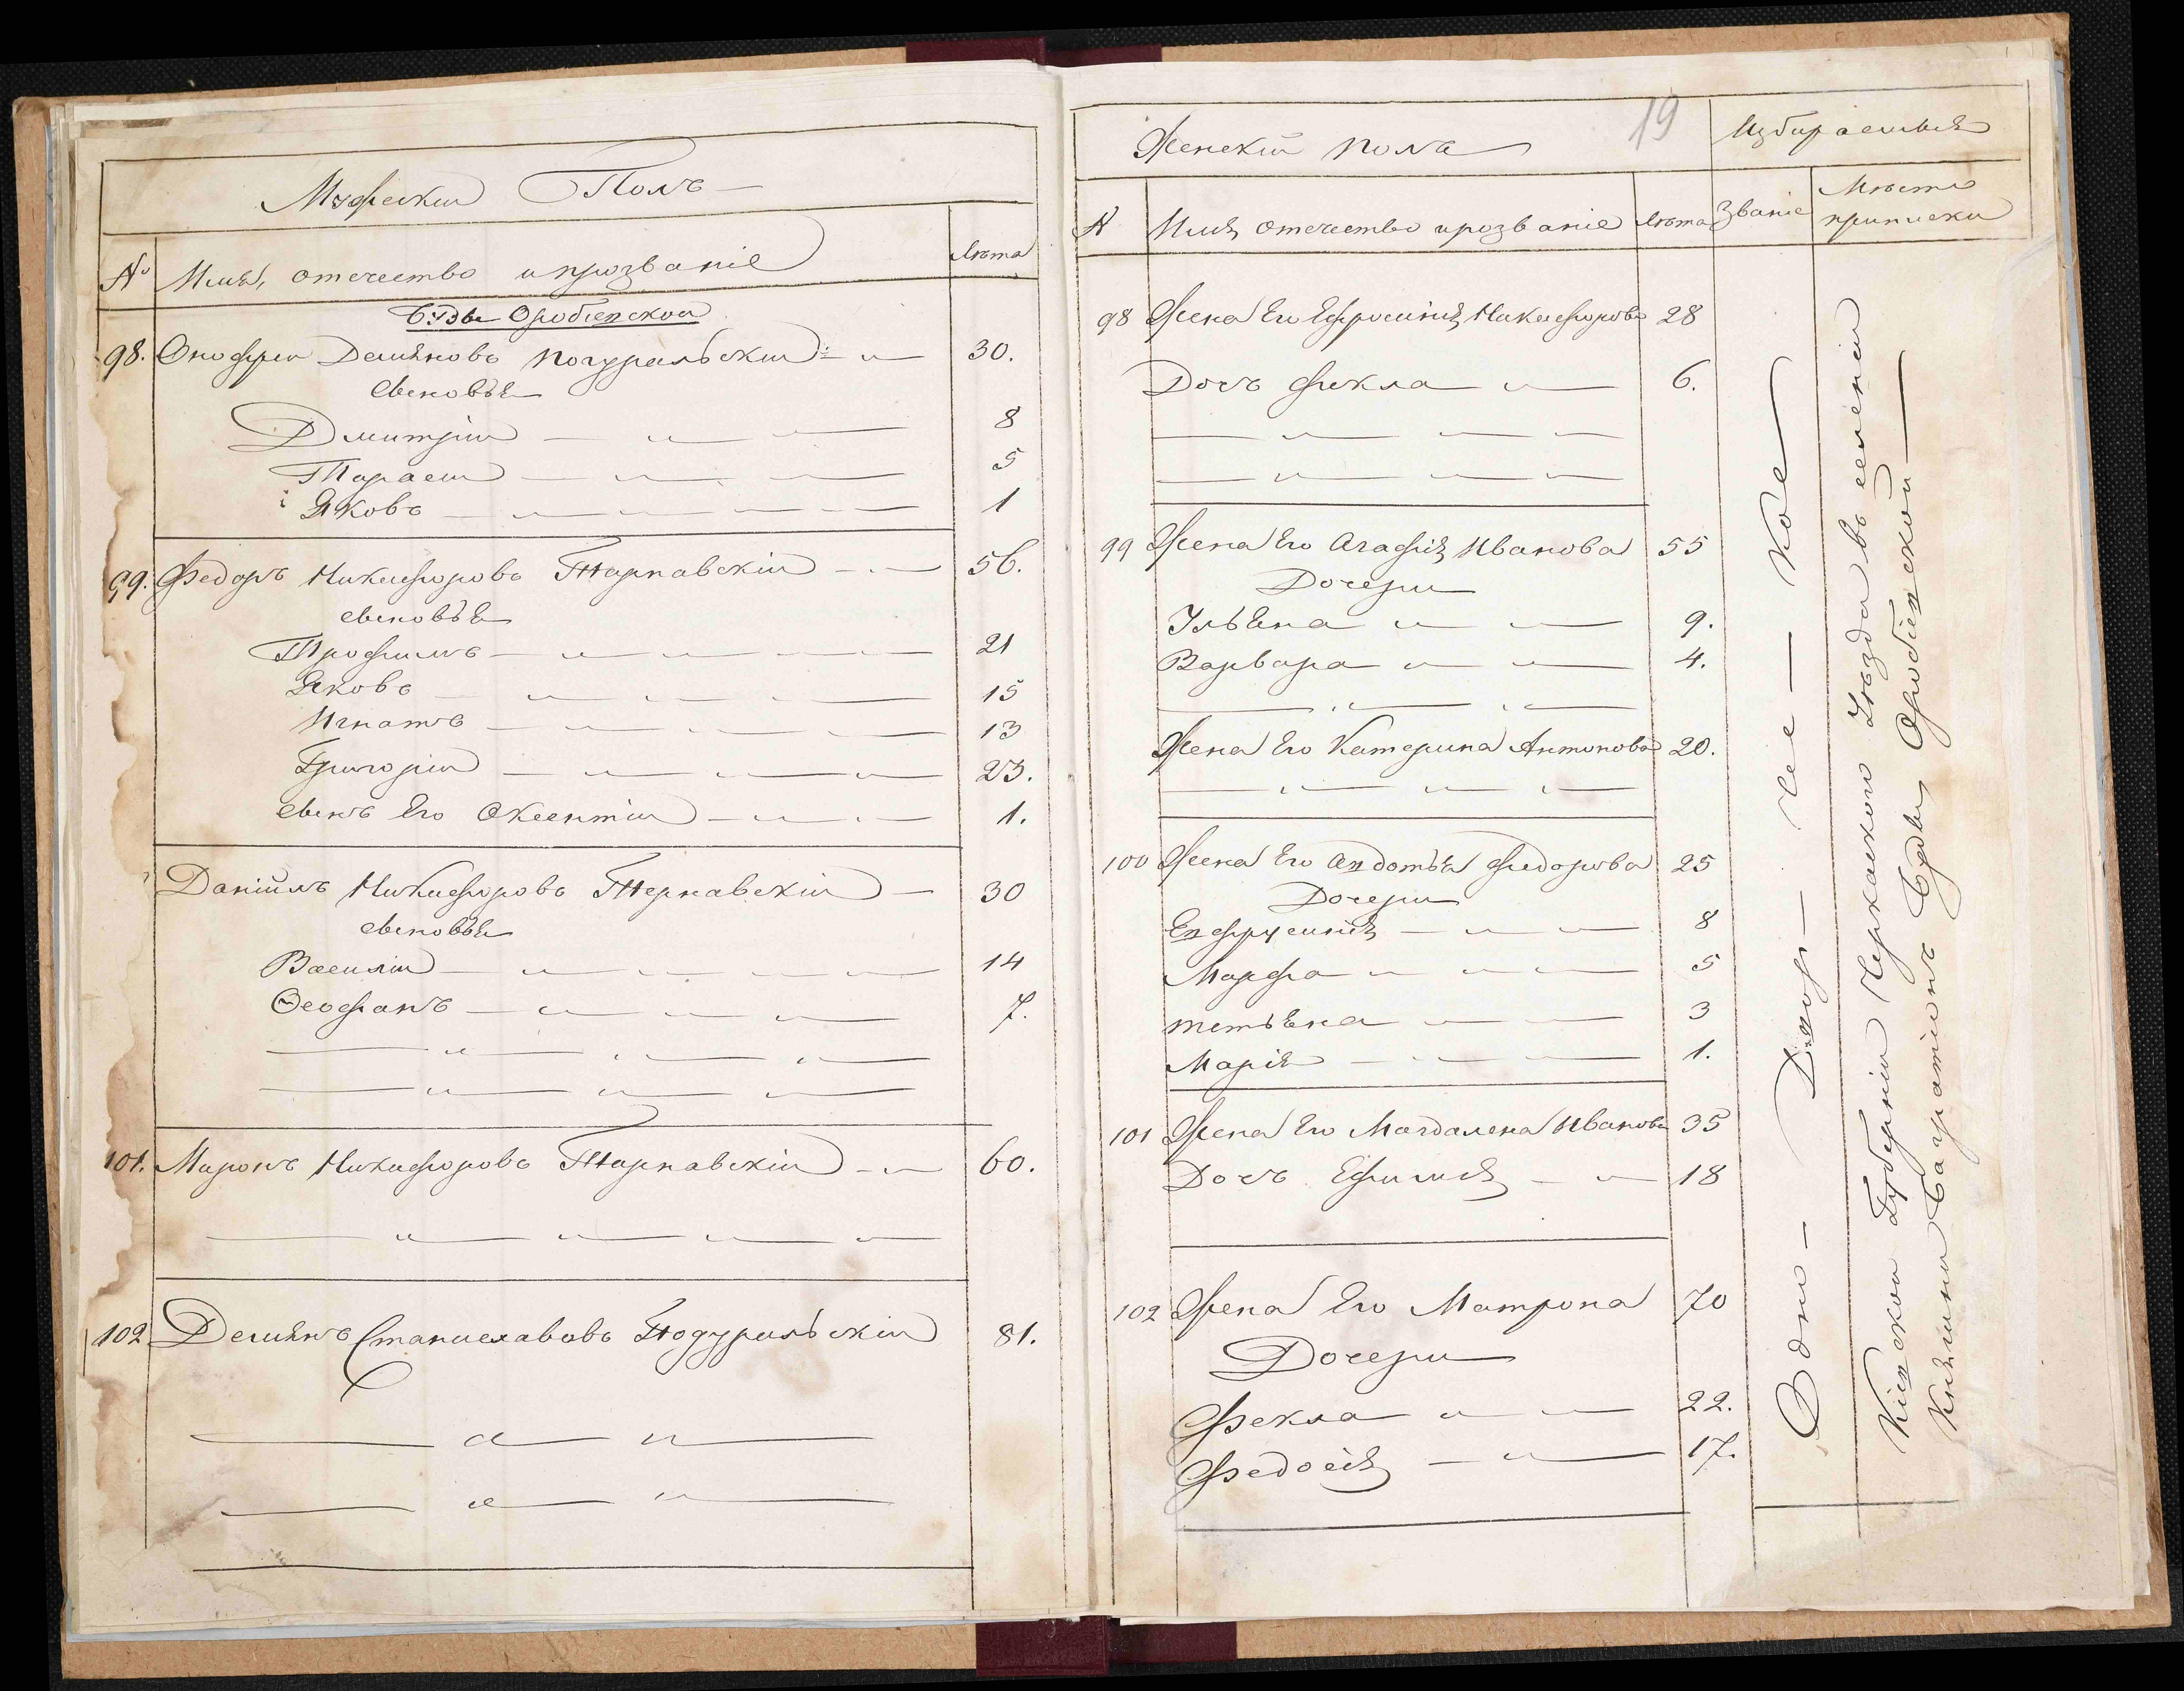 Мужеский Полъ
№ Имя, отечество и прозваніе Лѣта
Буды Оробіевской
98. Онофри Демяновъ Погурельский 30.
сыновья
Дмитрій 8
Тарасій 5
і Яковъ 1
99. Федоръ Никифоровъ Тарнавскій 56.
сыновья
Трофимъ 21
Яковъ 15
Игнатъ 13
Григорій 23.
сынъ Его Оксентій 1.
Даніилъ Никифоровъ Тернавскій 30
сыновья
Василій 14
Ѳеофанъ 7.
101. Миронъ Никифоровъ Тарнавскій 60.
102 Демянъ Станиславовъ Погурельскій 81.
Женскій полъ
19
Избираемыя
№ Имя, отечество и прозваніе Лѣта Званіе Мѣсто
приписки
98 Жена Его Ефросинія Никифорова 28
Дочъ Фекла 6.
99 Жена Его Агафія Иванова 55
Дочери
Ульяна 9.
Варвара 4.
Жена Его Катерина Антонова 20.
100 Жена Его Авдотья Федорова 25
Дочери
Евфрусинія 8
Марфа 5
тетьяна 3
Марія 1.
101 Жена Его Магдалена Иванова 35
Дочъ Ефимія 18
102 Жена Его Матрона 70
Дочери
Фекла 22.
Федосія 17.
Одно - Двор - че - кое
Кіевской Губерніи Черкаского Уѣзда въ селеніи
Княгини Багратіонъ Буды Оробіевской